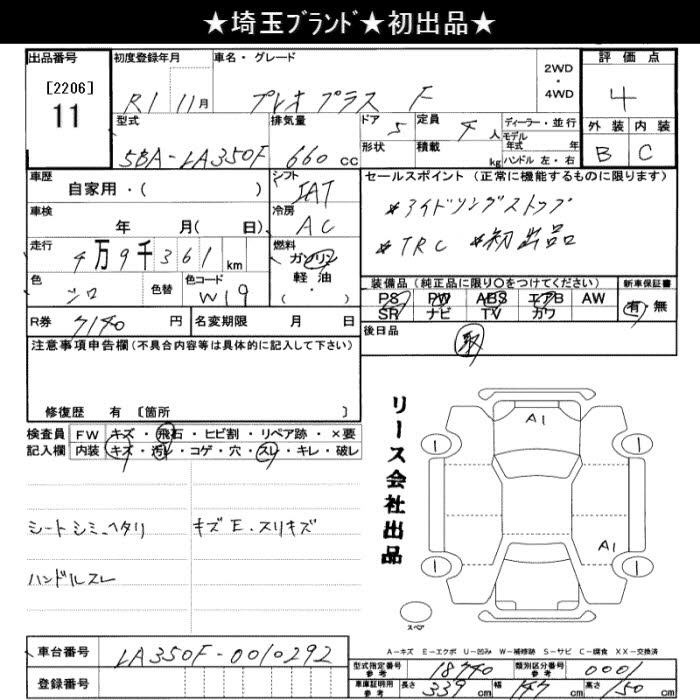 ★埼玉ﾌﾞﾗﾝﾄﾞ★初出品★
出品番号 初度登録年月 車名・グレード 評価点
[2206]
11
R1 11月 プレオ プラス F
2WD
・
4WD
4
型式 排気量 ドア 5 定員 4人 ディーラー・並行
モデル
年式 年
外装 内装
5BA-LA350F 660cc 形状 積載 kg ハンドル 左・右
B C
車歴 自家用・( ) シフト IAT
セールスポイント (正常に機能するものに限ります)
車検 年 月( 日) 冷房 AC
*アイドリングストップ
*TRC *初出品
走行 4万9千361km 燃料 ガソリン
軽油
・
色 シロ 色替 色コード W19
装備品 (純正品に限り〇をつけてください) 新車保証書
PS PW ABS エアB AW
SR ナビ TV カワ
有 無
R券 7140円 名変期限 月 日
後日品
取
注意事項申告欄(不具合内容等は具体的に記入して下さい)
修復歴 有 [箇所 ]
検査員 FW キズ・飛石・ヒビ割・リペア跡・×要
記入欄 内装 キズ・汚レ・コゲ・穴・スレ・キレ・破レ
シートシミ、ヘタリ キズE・スリキズ
ハンドルスレ
リース会社出品
A1
1 1
A1
1 1
スペア
A-キズ E-エクボ U-凹み W-補修跡 S-サビ C-腐食 XX-交換済
車台番号 LA350F-0010292
登録番号
型式指定番号
参考
18740
類別区分番号
参考
0001
車庫証明用
参考
長さ 339cm 幅 147cm 高さ 150cm